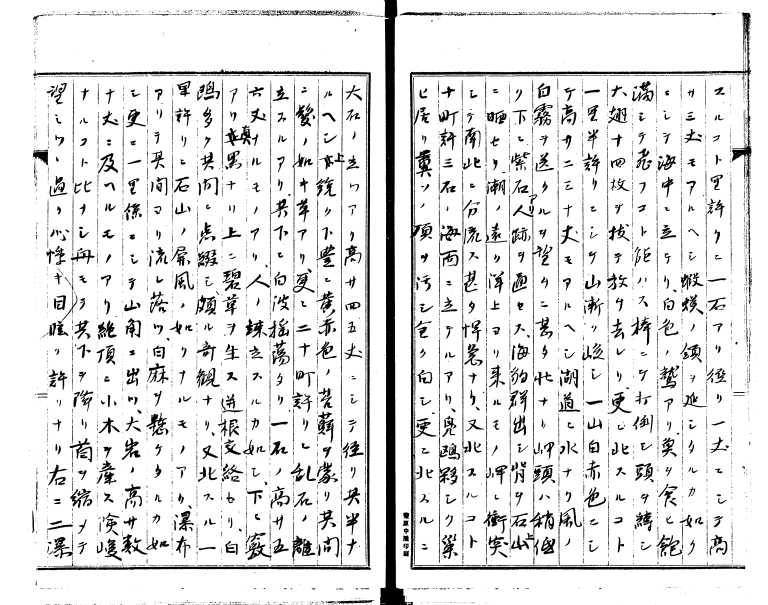 スルコト里許ク二一石アリ径リ一丈ニシテ高
サ三丈モアルヘシ蝦蟆ノ頭ヲ延シタルカ如ク
ニシテ海中ニ立テリ白色ノ鷲アリ奥ヲ食ヒ飽
満シテ飛フコト能ハス棒ニテ打倒シ頭ヲ縛シ
大翅十四枚ヲ抜テ放チ去レリ更ニ北スルコト
一里半許リニシテ山漸ク峻シ一山白赤色ニシ
テ高サ二三十丈モアルヘシ湖道ニ水ナリ風ノ
白霧ヲ送クルヲ望ムニ甚タ壮ナリ岬頭ハ稍低
リ下ニ紫石アリ人跡ヲ通セス海豹群出シ背ヲ石上
ニ晒セリ潮ノ遠ク洋上ヨリ来ルモノ岬ニ衝突
シテ南北ニ分流ス甚タ悍急ナリ又北スルコト
十町許三石ノ海面ニ立テルアリ鳧鴎夥シク巣
ヒ居リ糞ソノ頂ヲ汚シ全ク白シ更ニ北スルニ
大石ノ立ツアリ高サ四五丈ニシテ径リ其半ナ
ルヘシ上鋭ク下豊ニ黄赤色ノ苔蘚ヲ蒙リ其間
ニ髪ノ如キ草アリ更ニ二十町許リニ乱石ノ離
立スルアリ其下ニ白波揺蕩タリ一石ノ高サ五
六丈ナルモノアリ人ノ踈立スルカ如シ下ニ竅
アリ真黒ナリ上ニ碧草ヲ生ス逆根交絡セリ白
鴎多ク其間ニ点綴シ頗ル奇観ナリ又北スル一
里許リニ石山ノ屏風ノ如クナルモノアリ瀑布
アリテ其間ヨリ流レ落ツ白麻ヲ懸ケタルカ如
シ更ニ一里係ニシテ山角ニ出ツ大岩ノ高サ数
十丈ニ及ヘルモノアリ絶頂ニ小木ヲ産ス険峻
ナルコト比ナシ舟モテ其下ヲ降リ首ヲ縮メテ
望ミツヽ過ク心悸キ目眩ク許リナリ右ニ二瀑